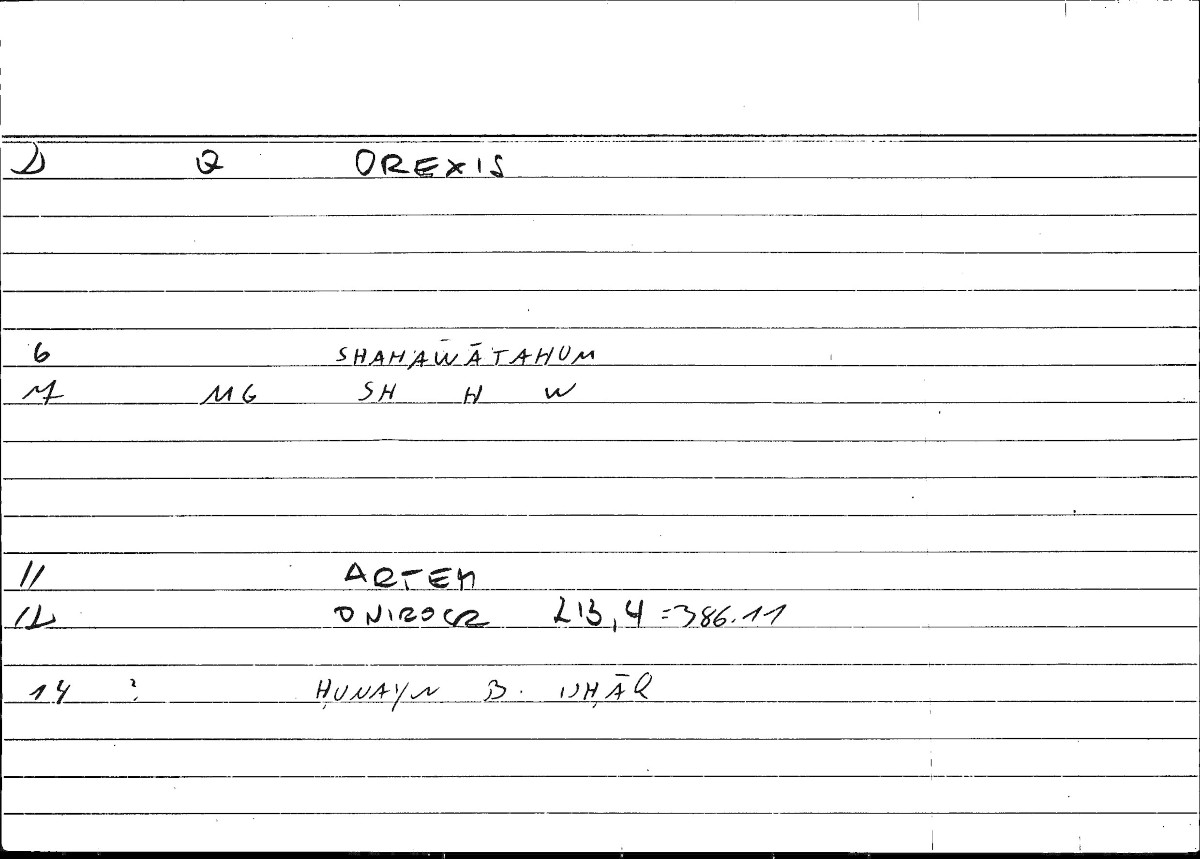 1 Q OREXIS
6 SHAHAWĀTAHUM
7 MG SH H W
11 ARTEM
12 ONIROCR 213,4 =386.11
14 ? ḤUNAYN B. ISḤĀQ